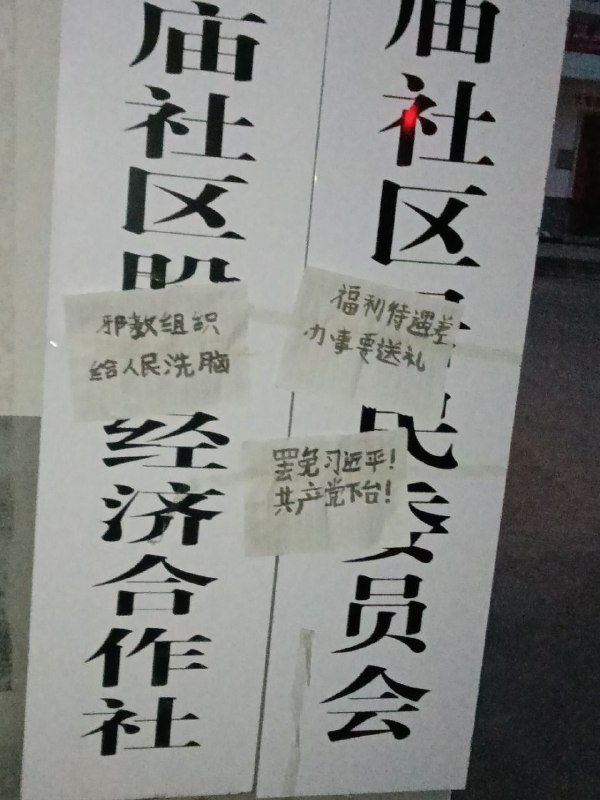 庙社区股
经济合作社
庙社区
民委员会
邪教组织
给人民洗脑
福利待遇差
办事要送礼
罢免习近平!
共产党下台!